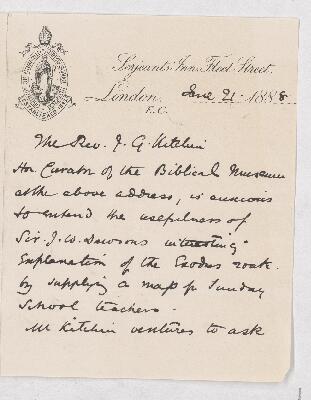 Serjeants' Inn, Fleet Street.
London.
E.C.
June 21 1888
The Rev. J. G. Kitchin
Hon. Curator of the Biblical Museum
at the above address, is anxious
to extend the usefulness of
Sir J. W. Dawsons interesting
Explanation of the Exodus
by supplying a map for Sunday
School teachers.
Mr Kitchin ventures to ask